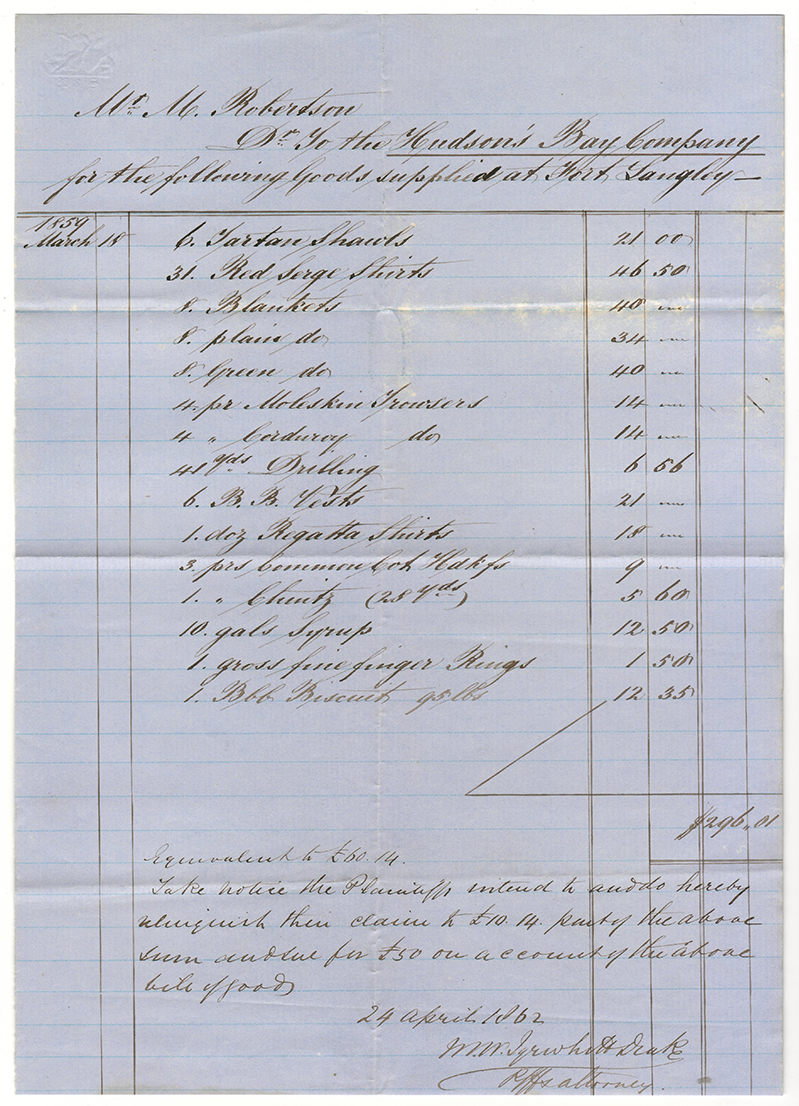 Mr. M. Robertson
Dr. To the Hudson's Bay Company
for the following Goods supplied at Fort Langley—
1859
March 18 6. Tartan Shawls 21 00
31. Red Serge Shirts 46 50
8. Blankets 40 "
8. plain do 34 "
8. Green do 40 "
4. pr Moleskin Trowsers 14 "
4 " Corduroy do 14 "
41 yds Drilling 6 56
6. B. B. Vests 21 "
1. doz Regatta Shirts 18 "
3. prs Common Cot Hdkfs 9 "
1. " Chintz (28 yds) 5 60
10. gals Syrup 12 50
1. gross fine finger Rings 1 50
1. Bbb Biscuit 95 lbs 12 35
$296,,01
Equivalent to £60.14.
Take notice the Plaintiffs intend to and do hereby
relinquish their claim to £10.14. part of the above
sum and sue for £50 on account of the above
bill of goods
24 April 1862
M.W. Tyrwhitt Drake
Plffs attorney.